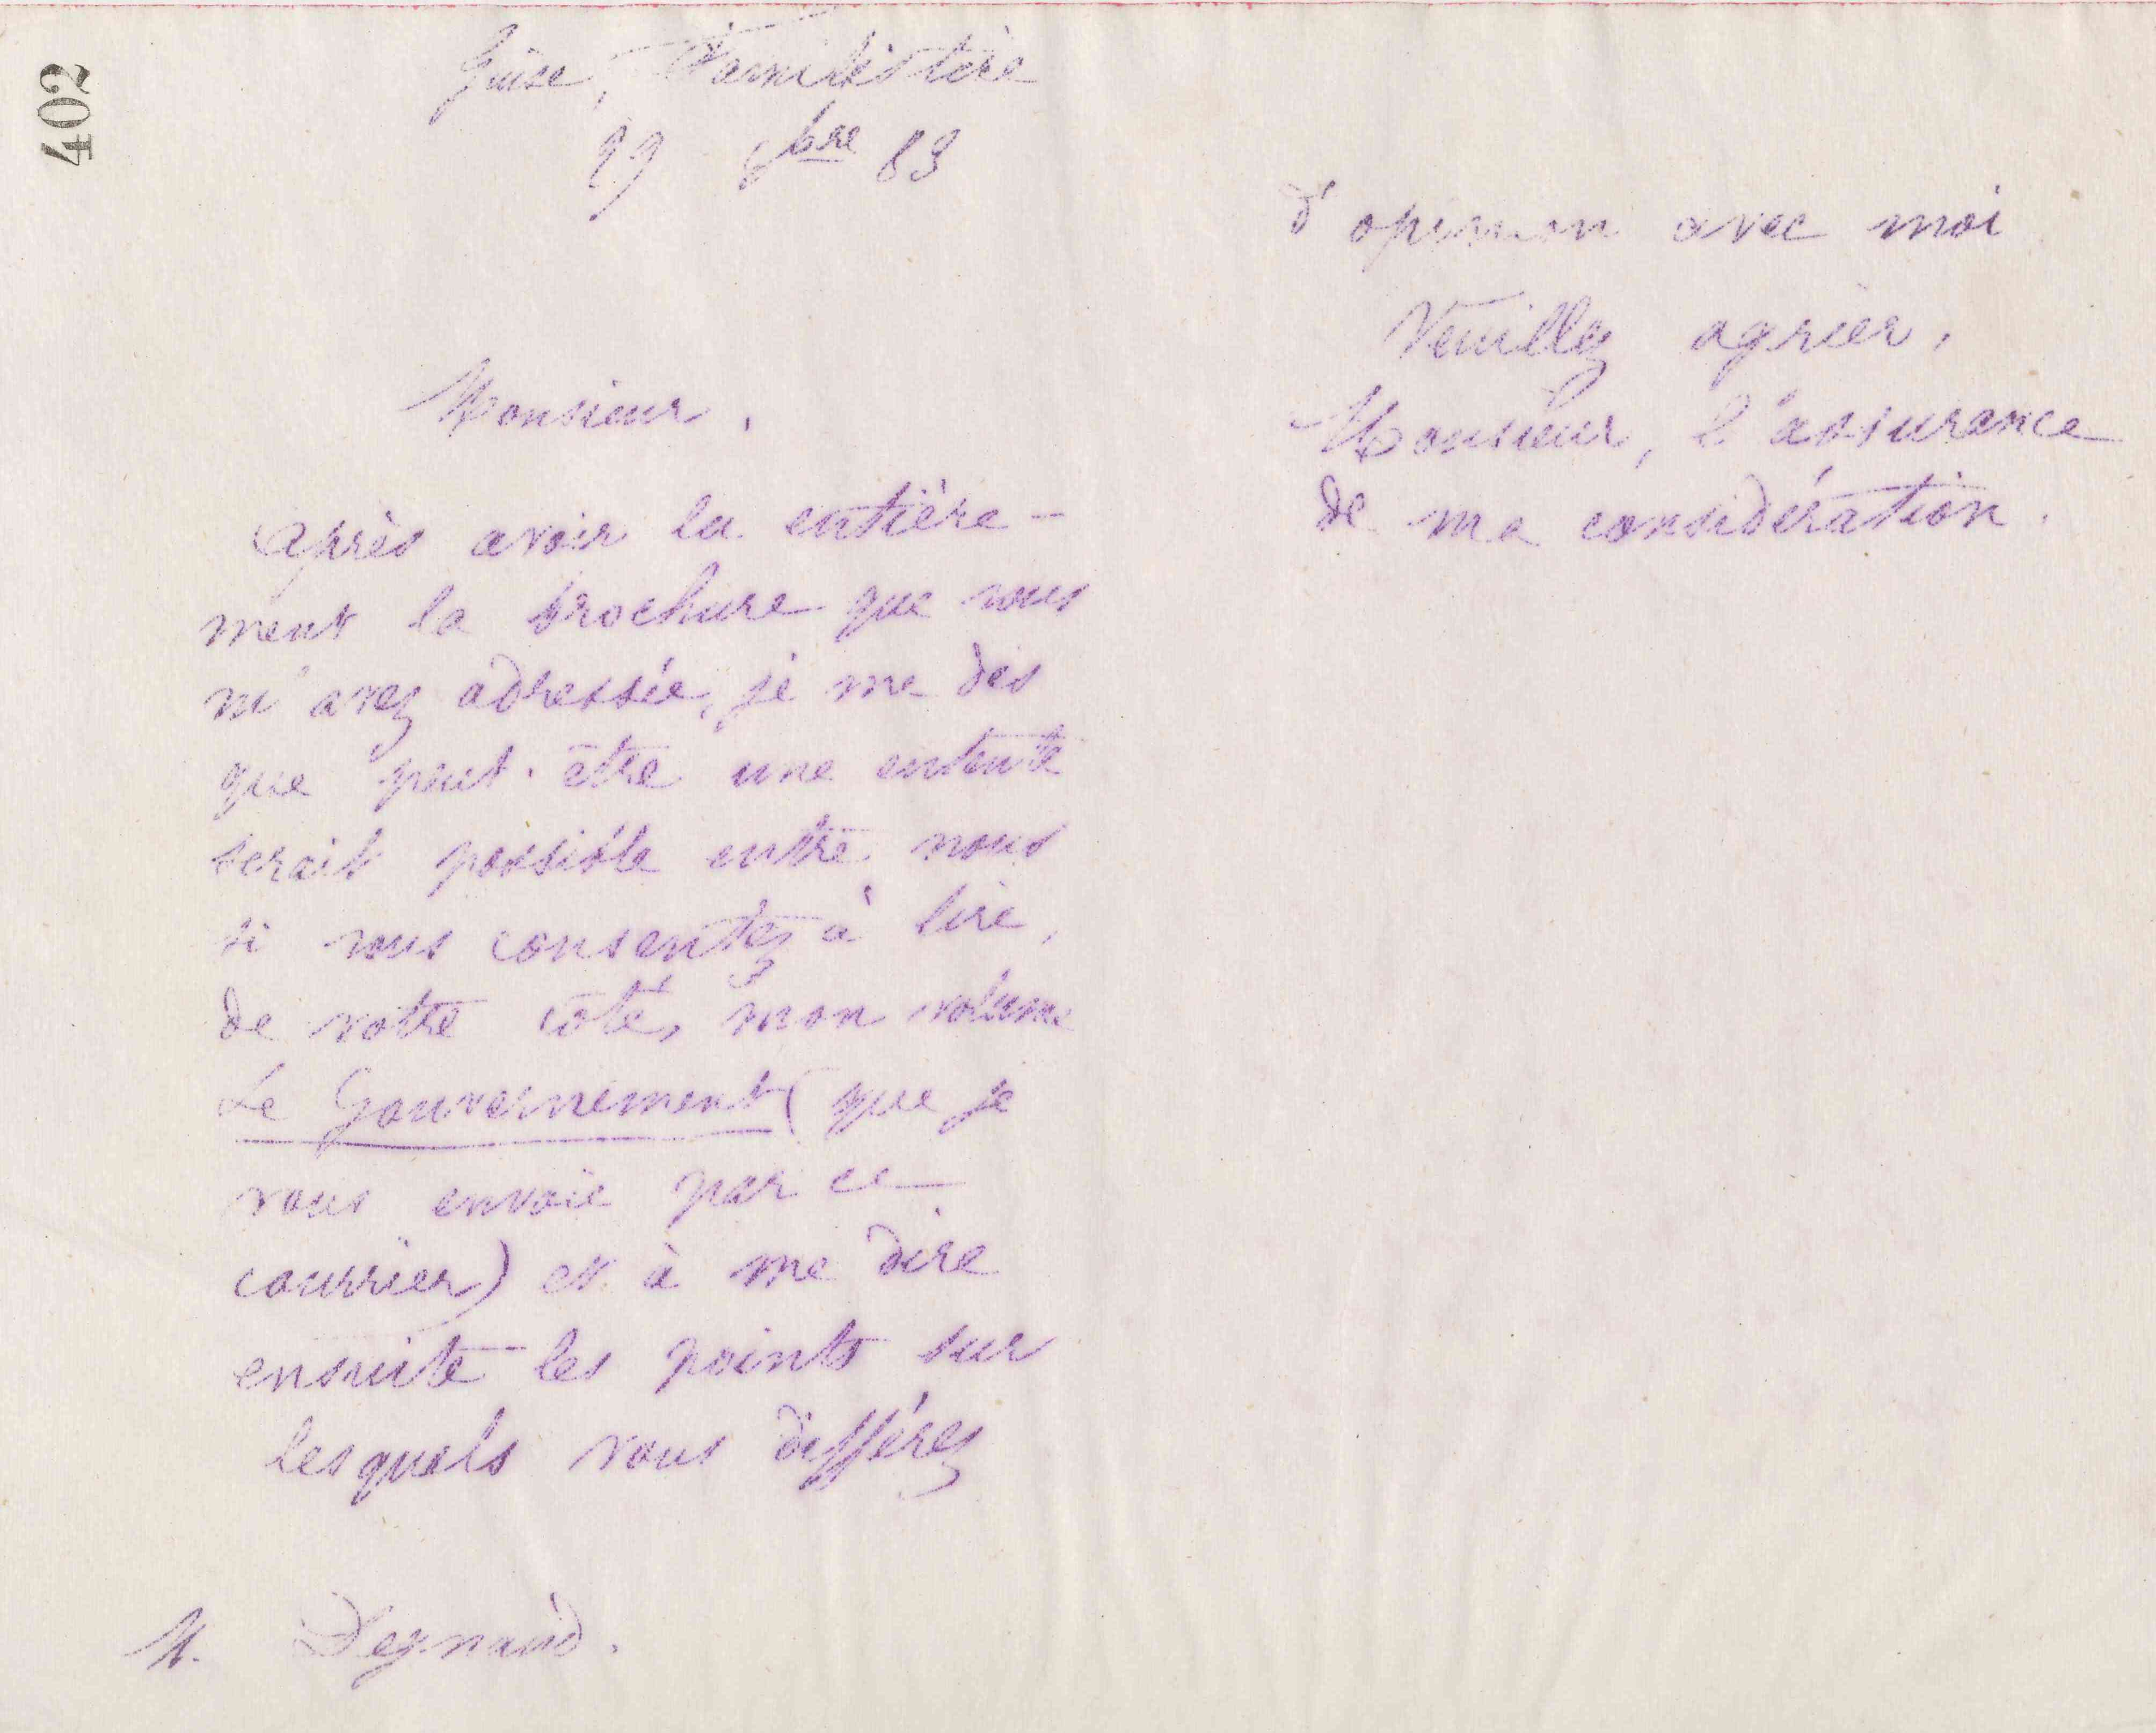 402
Guise, Familistère
29 8bre 83
Monsieur,
Après avoir lu entière-
ment la brochure que vous
m'avez adressée, je me dis
que peut-être une entente
serait possible entre nous
si vous consentez à lire,
de votre côté, mon volume
Le Gouvernement (que je
vous envoie par ce
courrier) et à me dire
ensuite les points sur
lesquels vous différez
M. Deynaud.
d'opinion avec moi
Veuillez agréer,
Monsieur, l'assurance
de ma considération.